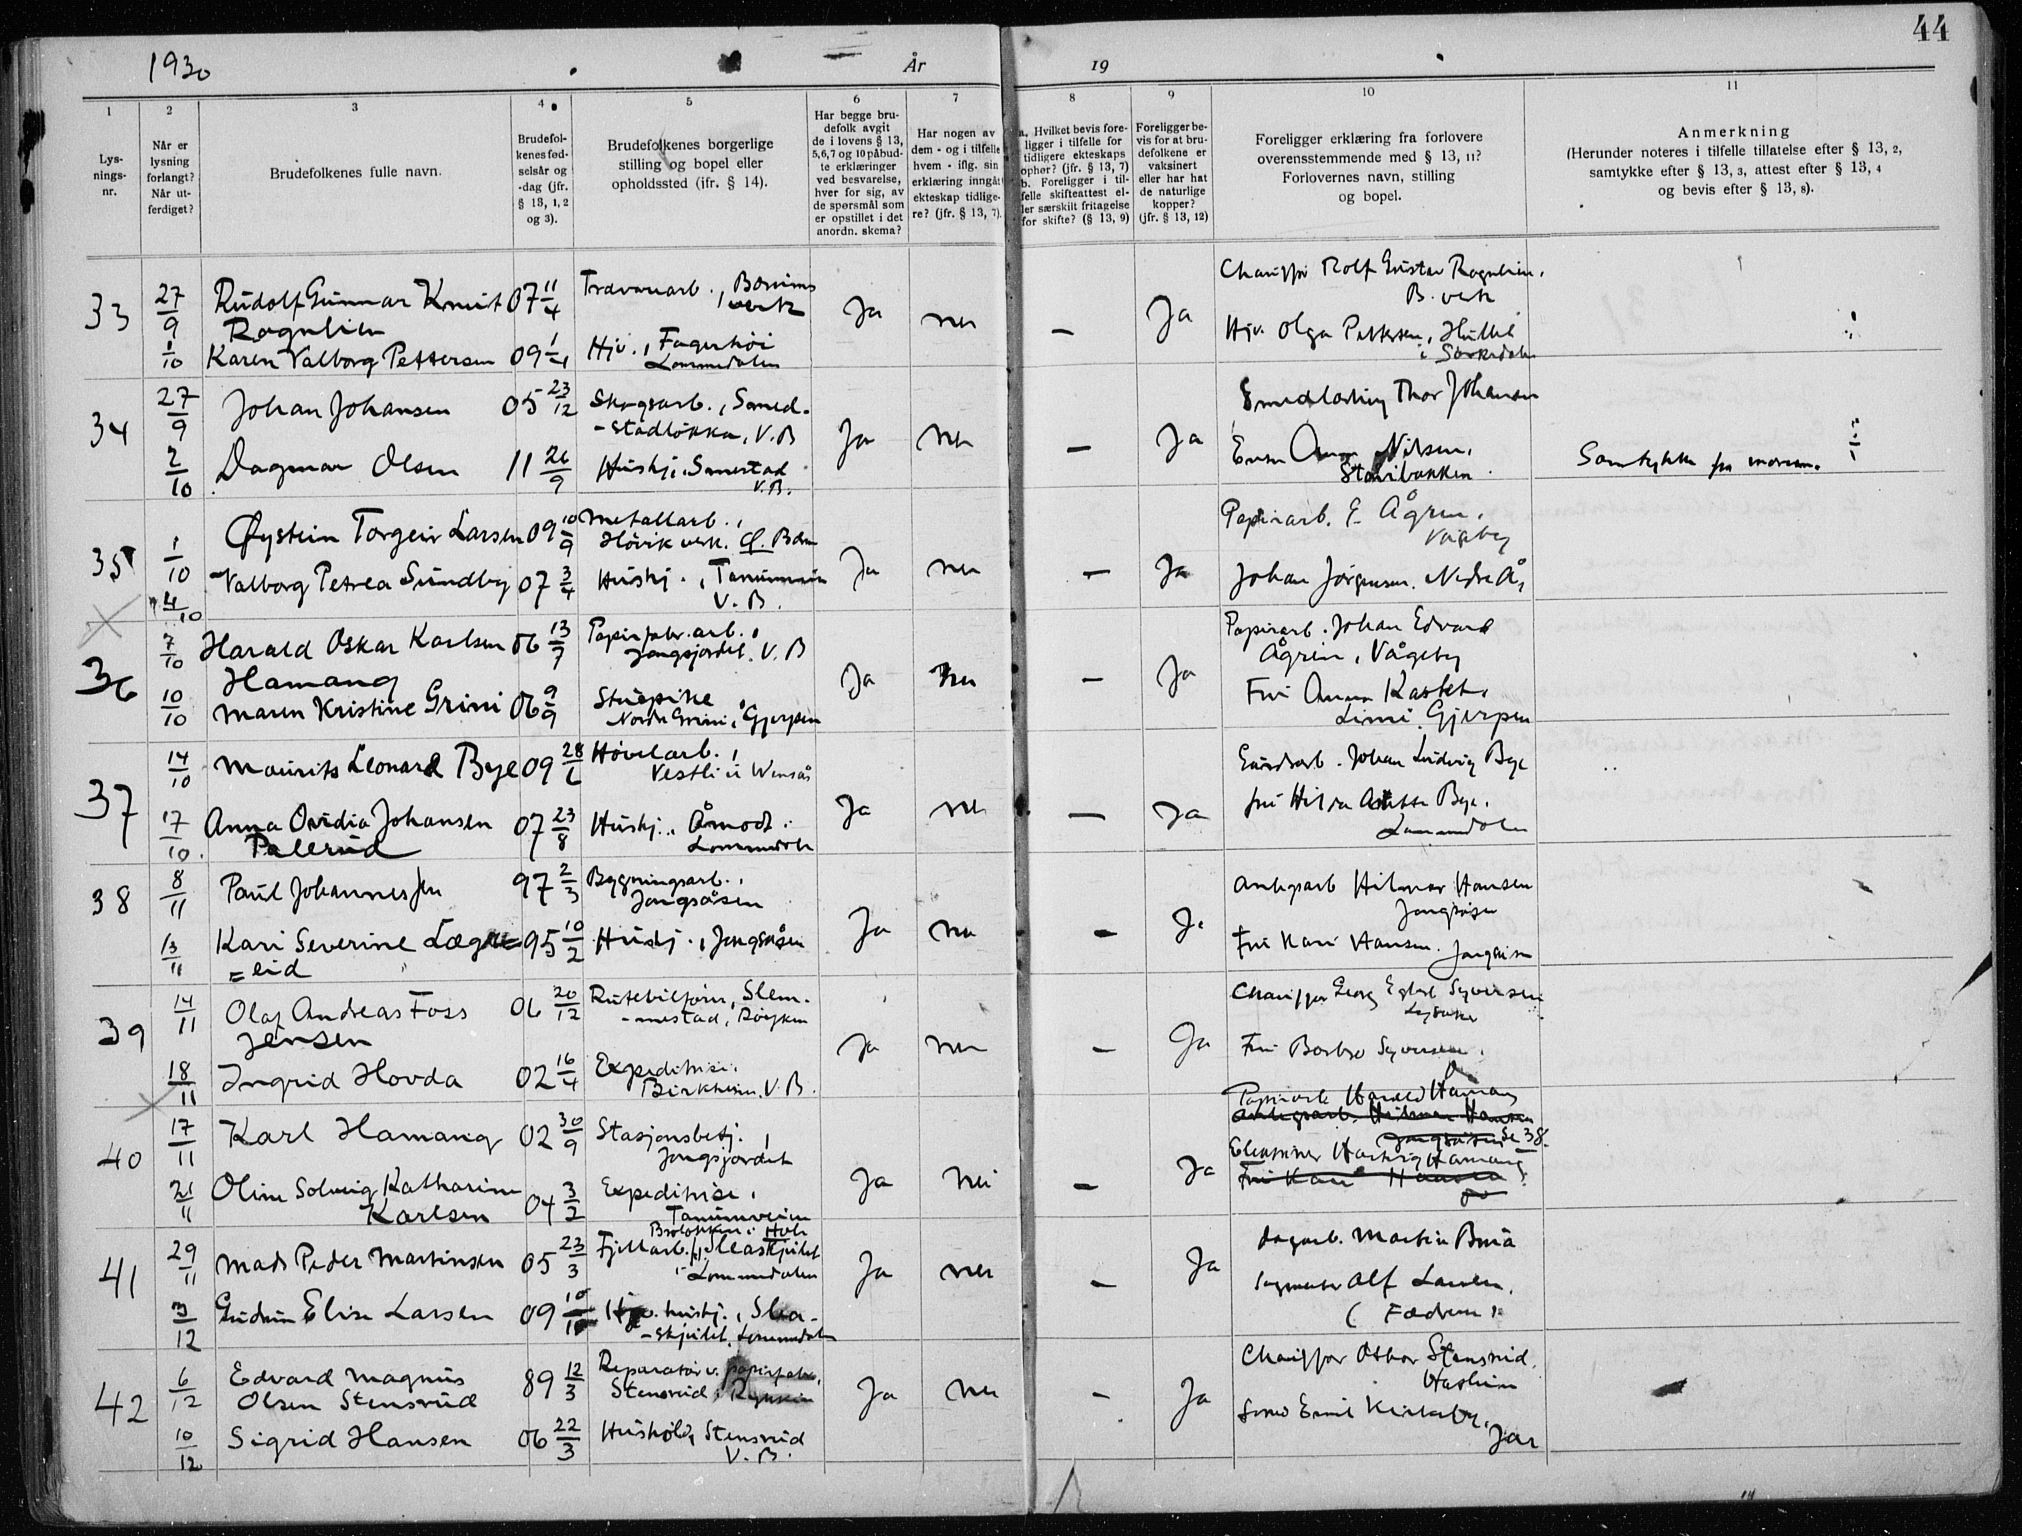 44
1930
År
19
1 2 3 4 5 6 7 8 9 10 11
Lys-
nings-
nr.
Når er
lysning
forlangt?
Når ut-
ferdiget?
Brudefolkenes fulle navn.
Brudefol-
kenes fød-
selsår og
-dag (jfr.
§ 13, 1, 2
og 3).
Brudefolkenes borgerlige
stilling og bopel eller
opholdssted (jfr. § 14).
Har begge bru-
defolk avgit
de i lovens § 13,
5, 6, 7 og 10 påbud-
te erklæringer
ved besvarelse,
hver for sig, av
de spørsmål som
er opstillet i det
anordn. skema?
Har nogen av
dem - og i tilfelle
hvem - iflg. sin
erklæring inngåt
ekteskap tidlige-
re? (jfr. § 13, 7).
a. Hvilket bevis fore-
ligger i tilfelle for
tidligere ekteskaps
ophør? (jfr. § 13, 7)
b. Foreligger i til-
felle skifteattest el-
ler særskilt fritagelse
for skifte? (§ 13, 9)
Foreligger be-
vis for at bru-
defolkene er
vaksinert
eller har hat
de naturlige
kopper?
(jfr. § 13, 12)
Foreligger erklæring fra forlovere
overensstemmende med § 13, 11?
Forlovernes navn, stilling
og bopel.
Anmerkning
(Herunder noteres i tilfelle tillatelse efter § 13, 2,
samtykke efter § 13, 3, attest efter § 13, 4
og bevis efter § 13, 8).
33
27/9
Rudolf Gunnar Knut
Rognlien
07 11/4
Trævarearb., Bærums
verk
Ja nei — Ja
Chauffør Rolf Gustav Rognlien,
B. verk
1/10
Karen Valborg Pettersen 09 1/4
Hjv., Fagerhøi
Lommedalen
Hjv. Olga Pettersen,
i Sørkedalen
34
27/9
Johan Johansen 05 23/12
Skogsarb., Smed-
-stadløkka, V.B
Ja nei — Ja
Thor Johansen
2/10
Dagmar Olsen 11 26/9
Hushj., Smestad
V.B.
Anna Nilsen,
Samtykke fra moren.
35
1/10
Øystein Torgeir Larsen 09 10/9
Metallarb.,
Høvik verk. Ø. Bærum
Ja nei — Ja
Papirarb. E. Ågren,
Vågeby
4/10
Valborg Petrea Sundby 07 3/4
Hushj., Tanumveien
V. B.
Johan Jørgensen. Nedre Ås
36
7/10
Harald Oskar Karlsen
Hamang
06 13/7
Papirfabr.arb.,
Jongsjordet. V. B
Ja nei — Ja
Papirarb. Johan Edvard
Ågren, Vågeby
10/10
Maren Kristine Grini 06 9/9
Stuepike
Nordre Grini, Gjerpen
Fru Anna Kastet,
Limi. Gjerpen
37
14/10
Maurits Leonard Bye 09 28/6
Høvelarb.,
Vestli
Ja nei — Ja
Johan Ludvig Bye
17/10
Anna Ovidia Johansen
Palerud
07 23/8
Hushj., Åmodt.
Lommedalen
fru Hilda Bye.
Lommedalen
38
8/11
Paul Johannessen 97 2/3
Bygningsarb.,
Jongsåsen
Ja nei — Ja
Anlegsarb Hilmar Hansen
Jongsåsen
13/11
Kari Severine Lægre=
=eid
95 10/2
Hushj., Jongsåsen
Fru Kari Hansen. Jongsåsen
39
14/11
Olaf Andreas Foss
Jensen
06 20/12
Rutebileier, Slem-
-mestad, Røyken
Ja nei — Ja
Chauffør Georg Syversen
Lysaker
18/11
Ingrid Hovda 02 16/4
Expeditrise.
Birkheim. V. B.
Fru Borbro Syversen.
40
17/11
Karl Hamang 02 30/9
Stasjonsbetj.
Jongsjordet
Ja Nei — Ja
Papirarb Harald Hamang
Anlegsarb. Hilmar Hansen
Jongsåsen Se 38.
21/11
Oline Solveig Katharine
Karlsen
04 3/2
Expeditrise,
Tanumveien
Hartvig Hamang
Fru Kari Hansen
41
29/11
Mads Peder Martinsen 05 23/3
Broløkken i Hole
Fjellarb.
Lommedalen
Ja nei — Ja
Martin Braa
3/12
Gudrun Elise Larsen 09
hushj., Slea-
-skjulet, Lommedalen
Alf Larsen,
( Fædrene )
42
6/12
Edvard Magnus
Olsen Stensrud
89 12/3
Reparatør v. papirfabr.
Stensrud, Røyken
Ja nei — Ja
Chauffør Othar Stensrud.
10/12
Sigrid Hansen 06 22/3
Hushold, Stensrud
V. B.
Emil Kirkeby,
Jar